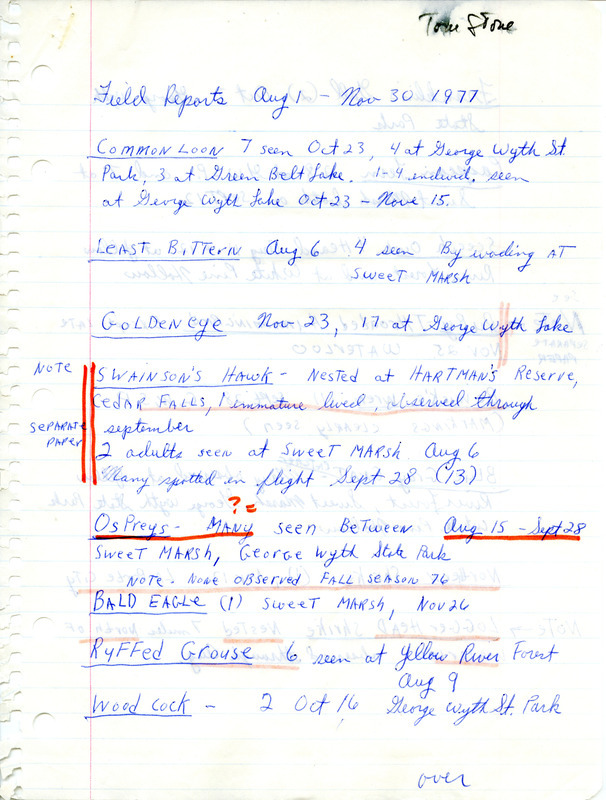 Tom Stone
Field Reports Aug 1 - Nov 30 1977
Common Loon 7 seen Oct 23, 4 at George Wyth St.
Park, 3 at Green Belt Lake. 1-4 individ. seen
at George Wyth Lake Oct 23 - Nove 15.
Least Bittern Aug 6 4 seen By wading AT
Sweet Marsh
Goldeneye Nov. 23, 17 at George Wyth Lake
NOTE
SEPARATE PAPER
Swainson's Hawk - Nested at Hartman's Reserve,
Cedar Falls, 1 immature lived, observed through
september
2 adults seen at Sweet Marsh Aug 6
Many spotted in flight Sept 28 (13)
? =
Ospreys - Many seen Between Aug 15 - Sept 28
Sweet Marsh, George Wyth State Park
Note - None observed Fall season 76
Bald Eagle (1) Sweet Marsh, Nov 26
Ryffed Grouse 6 seen at Yellow River Forest
Aug 9
Wood cock - 2 Oct 16 George Wyth St. Park
over